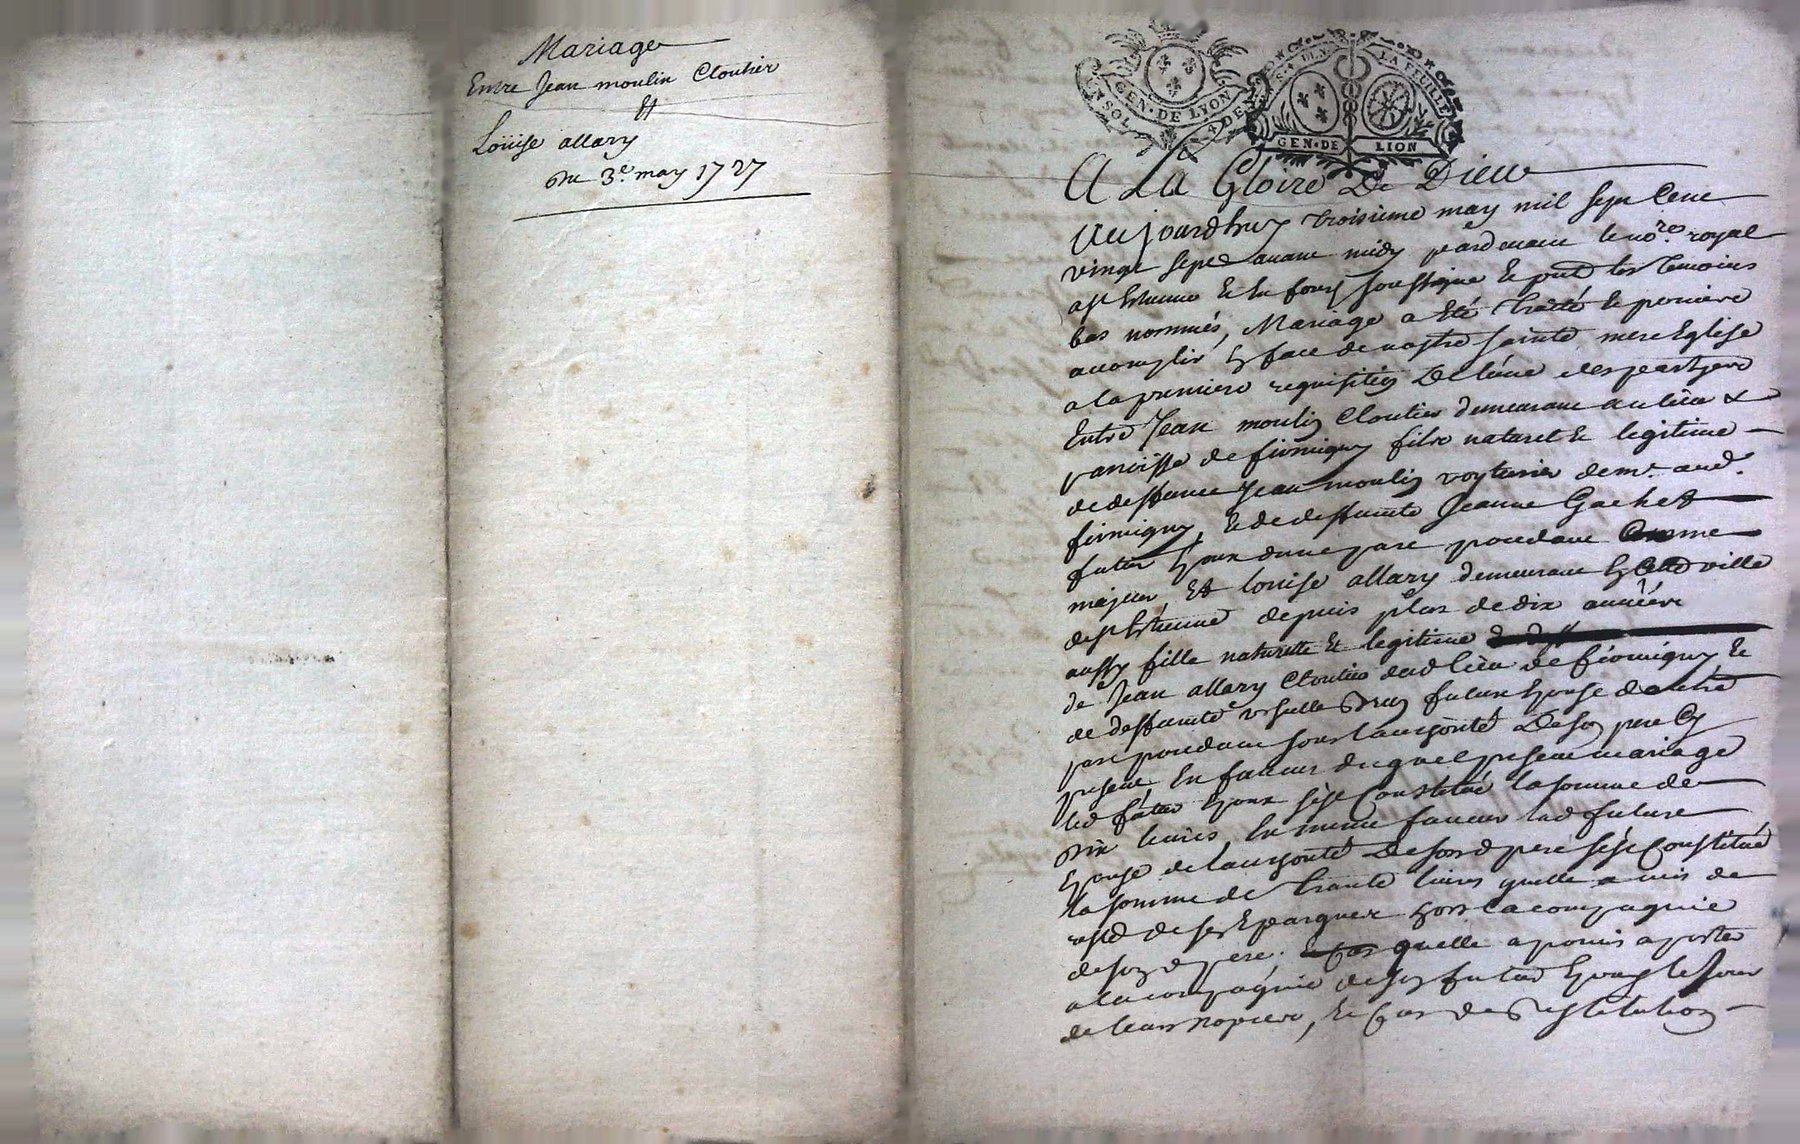 Mariage
Entre Jean moulin Cloutier
Et
Loüise allary
Du 3e. may 1727
UN SOL
GEN. DE LYON
4 DE
LA FEUILLE
GEN. DE LION
A La Gloire De Dieu
Aujourdhuy troisieme may mil sept Cent
vingt sept avant midy pardevant le nore. royal
a st Estienne En forest soussigné Et pnts les temoins
bas nommés, Mariage a Eté traitté Et
accomplir En face de nostre sainte mere Eglise
a la premiere requisition De lune des parties
Entre Jean moulin Cloutier demeurant au lieu &
parroisse de firmigny fils naturel & legitime
de deffunct Jean moulin voyturier dem.t aud.
firmigny, Et de deffuncte Jeanne Gachet
futur Epoux dune part procedant Comme
majeur Et Louise allary demeurant En Cette ville
de st Estienne depuis plus de dix années
aussy fille naturelle Et legitime
de Jean allary Cloutier dud lieu de firmigny Et
de deffuncte future Epouse dautre
part procedant sous lauthorité De son pere Cy
present, En faveur duquel present mariage
led futur Epoux sest Constitué la somme de
Dix livres En meme faveur lad future
Epouse de lauthorité De sond pere sest Constitué
la somme de trante livres quelle a mis de
reste de ses Epargnes hors la compagnie
de sond pere. quelle a promis aporter
a la compagnie de son futur Epoux le jour
de leurs nopces, En Cas de Restitution